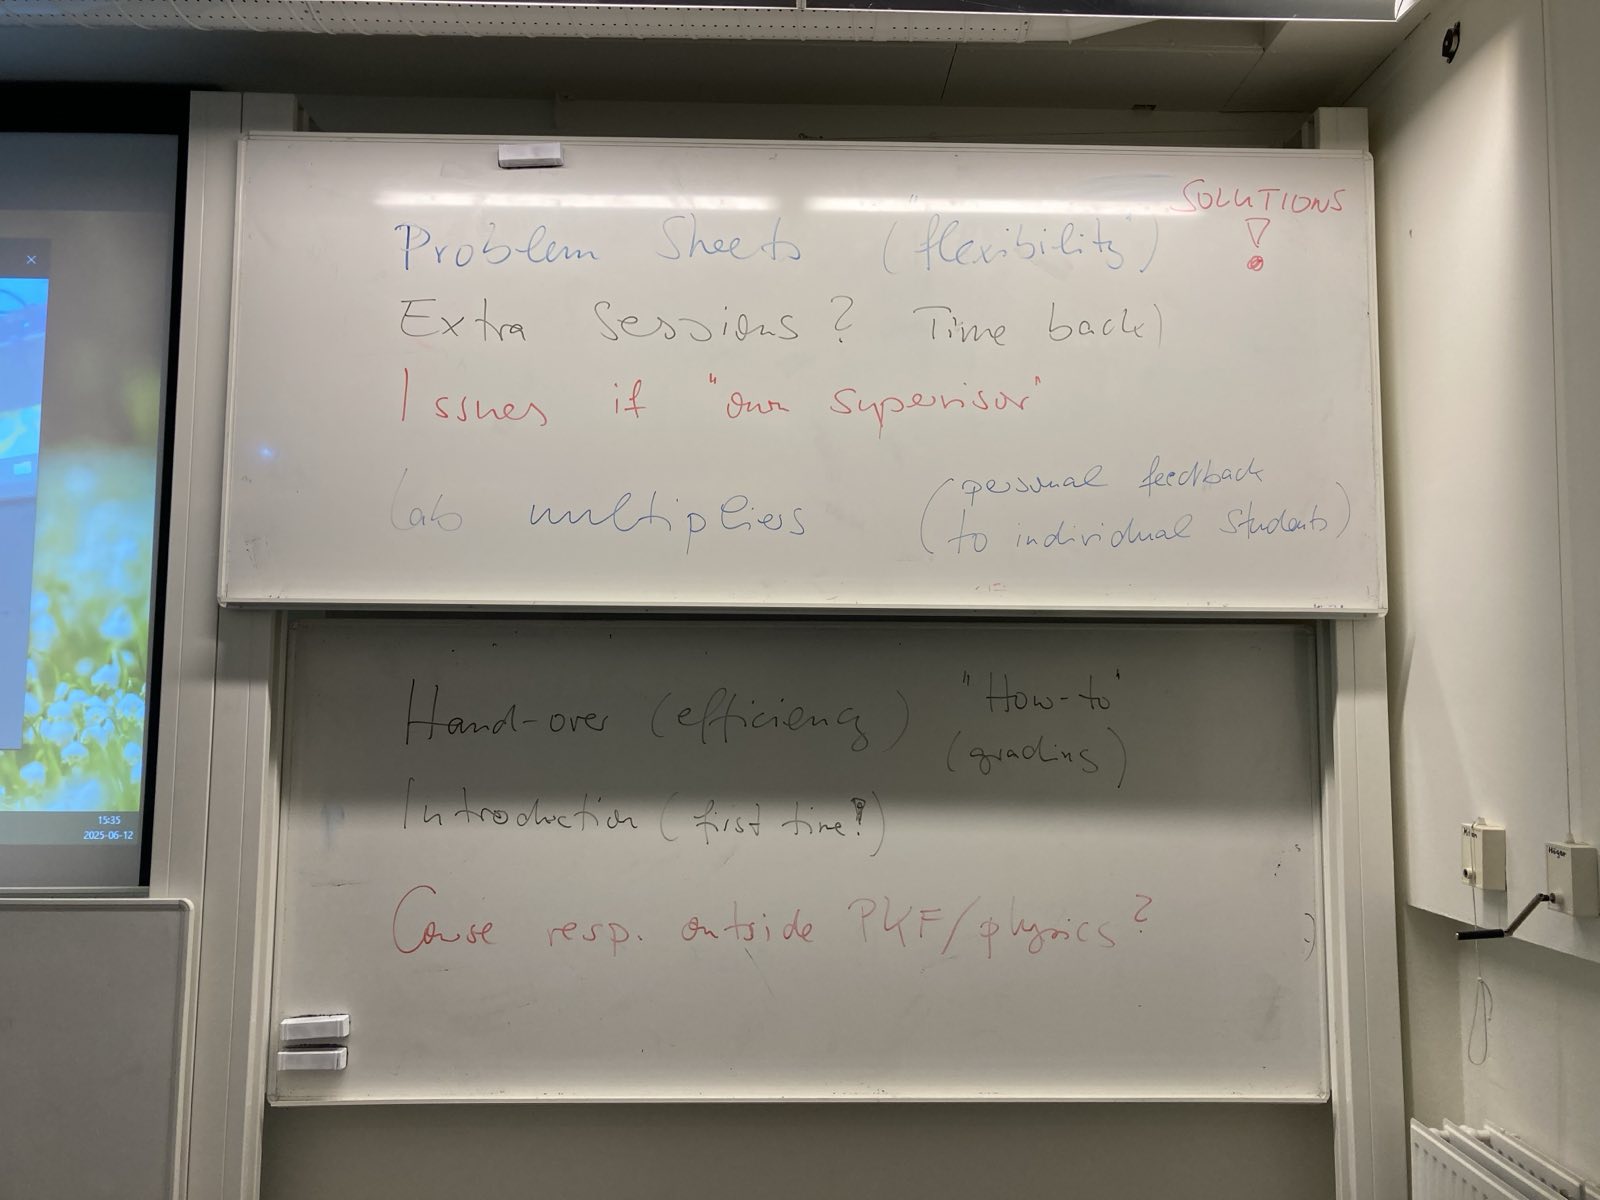 SOLUTIONS !
Problem Sheets ("flexibility")
Extra Sessions? Time back)
Issues if "own supervisor"
Lab multipliers (personal feedback
to individual students)
Hand-over (efficiency) "How-to"
(grading)
Introduction (first time!)
Course resp. outside PKF/physics?
15:35
2025-06-12
Höger